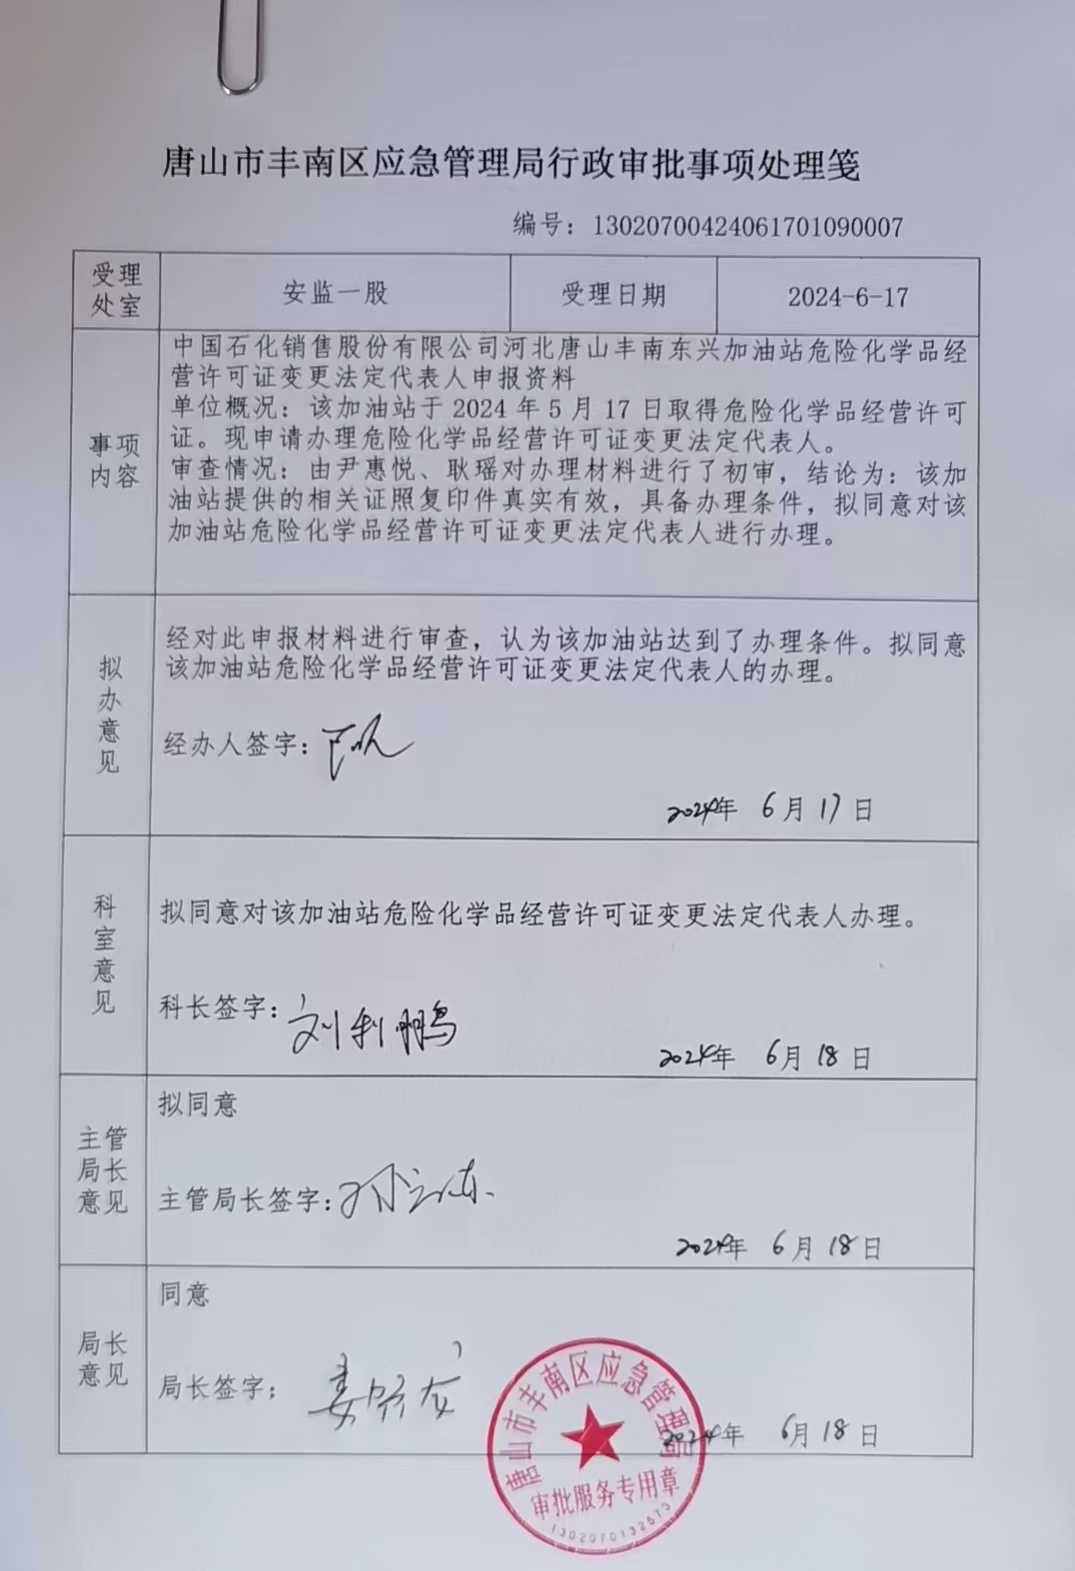 唐山市丰南区应急管理局行政审批事项处理笺
编号：13020700424061701090007
受理
处室
安监一股
受理日期
2024-6-17
事项
内容
中国石化销售股份有限公司河北唐山丰南东兴加油站危险化学品经
营许可证变更法定代表人申报资料
单位概况：该加油站于 2024 年 5 月 17 日取得危险化学品经营许可
证。现申请办理危险化学品经营许可证变更法定代表人。
审查情况：由尹惠悦、耿瑶对办理材料进行了初审，结论为：该加
油站提供的相关证照复印件真实有效，具备办理条件，拟同意对该
加油站危险化学品经营许可证变更法定代表人进行办理。
拟
办
意
见
经对此申报材料进行审查，认为该加油站达到了办理条件。拟同意
该加油站危险化学品经营许可证变更法定代表人的办理。
经办人签字：
2024年 6月17日
科
室
意
见
拟同意对该加油站危险化学品经营许可证变更法定代表人办理。
科长签字：刘利鹏
2024年 6月18日
主管
局长
意见
拟同意
主管局长签字：
2024年 6月18日
局长
意见
同意
局长签字：
2024年 6月18日
唐山市丰南区应急管理局
审批服务专用章
1302070132573